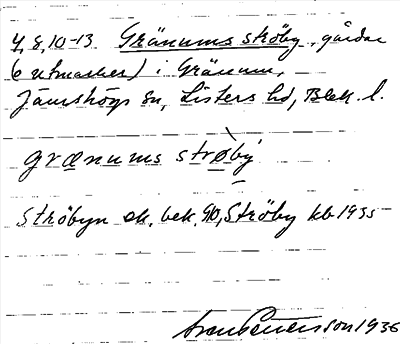 4, 8, 10-13 Gränums ströby, gårdar
(o utmarker) i Gränum,
Jämshögs sn, Listers hd, Blek. l.
grænums strøby
Ströbyn ek. bek. 90, Ströby kb 1935
Sven Benson 1936